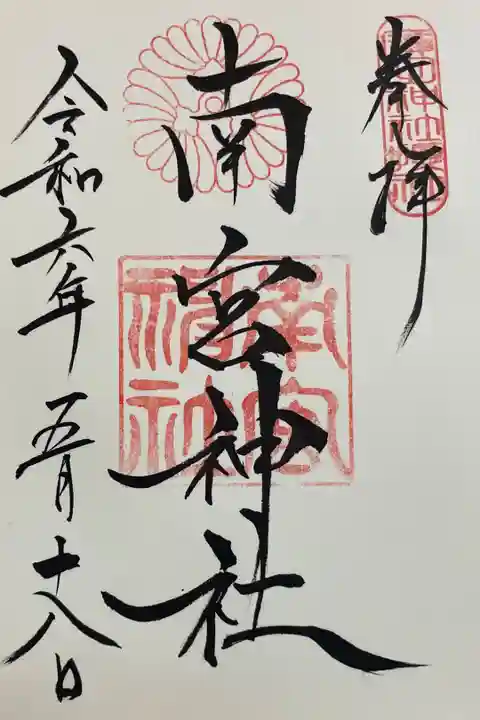 奉拝
南宮神社
令和六年五月十八日
南宮神社